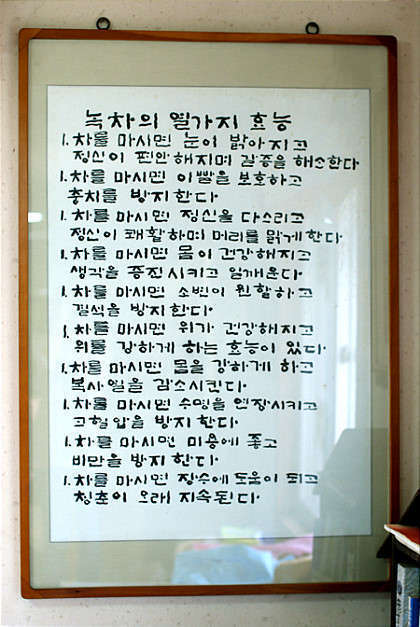 녹차의 열가지 효능
1. 차를 마시면 눈이 밝아지고
정신이 편안해지며 갈증을 해소한다
1. 차를 마시면 이빨을 보호하고
충치를 방지한다.
1. 차를 마시면 정신을 다스리고
정신이 쾌활하며 머리를 맑게한다
1. 차를 마시면 몸이 건강해지고
생각을 증진시키고 일깨운다.
1. 차를 마시면 소변이 원할하고
결석을 방지한다.
1. 차를 마시면 위가 건강해지고
위를 강하게 하는 효능이 있다.
1. 차를 마시면 몸을 강하게 하고
복사열을 감소시킨다.
1. 차를 마시면 수명을 연장시키고
고혈압을 방지한다.
1. 차를 마시면 미용에 좋고
비만을 방지한다.
1. 차를 마시면 장수에 도움이 되고
청춘이 오래 지속된다.